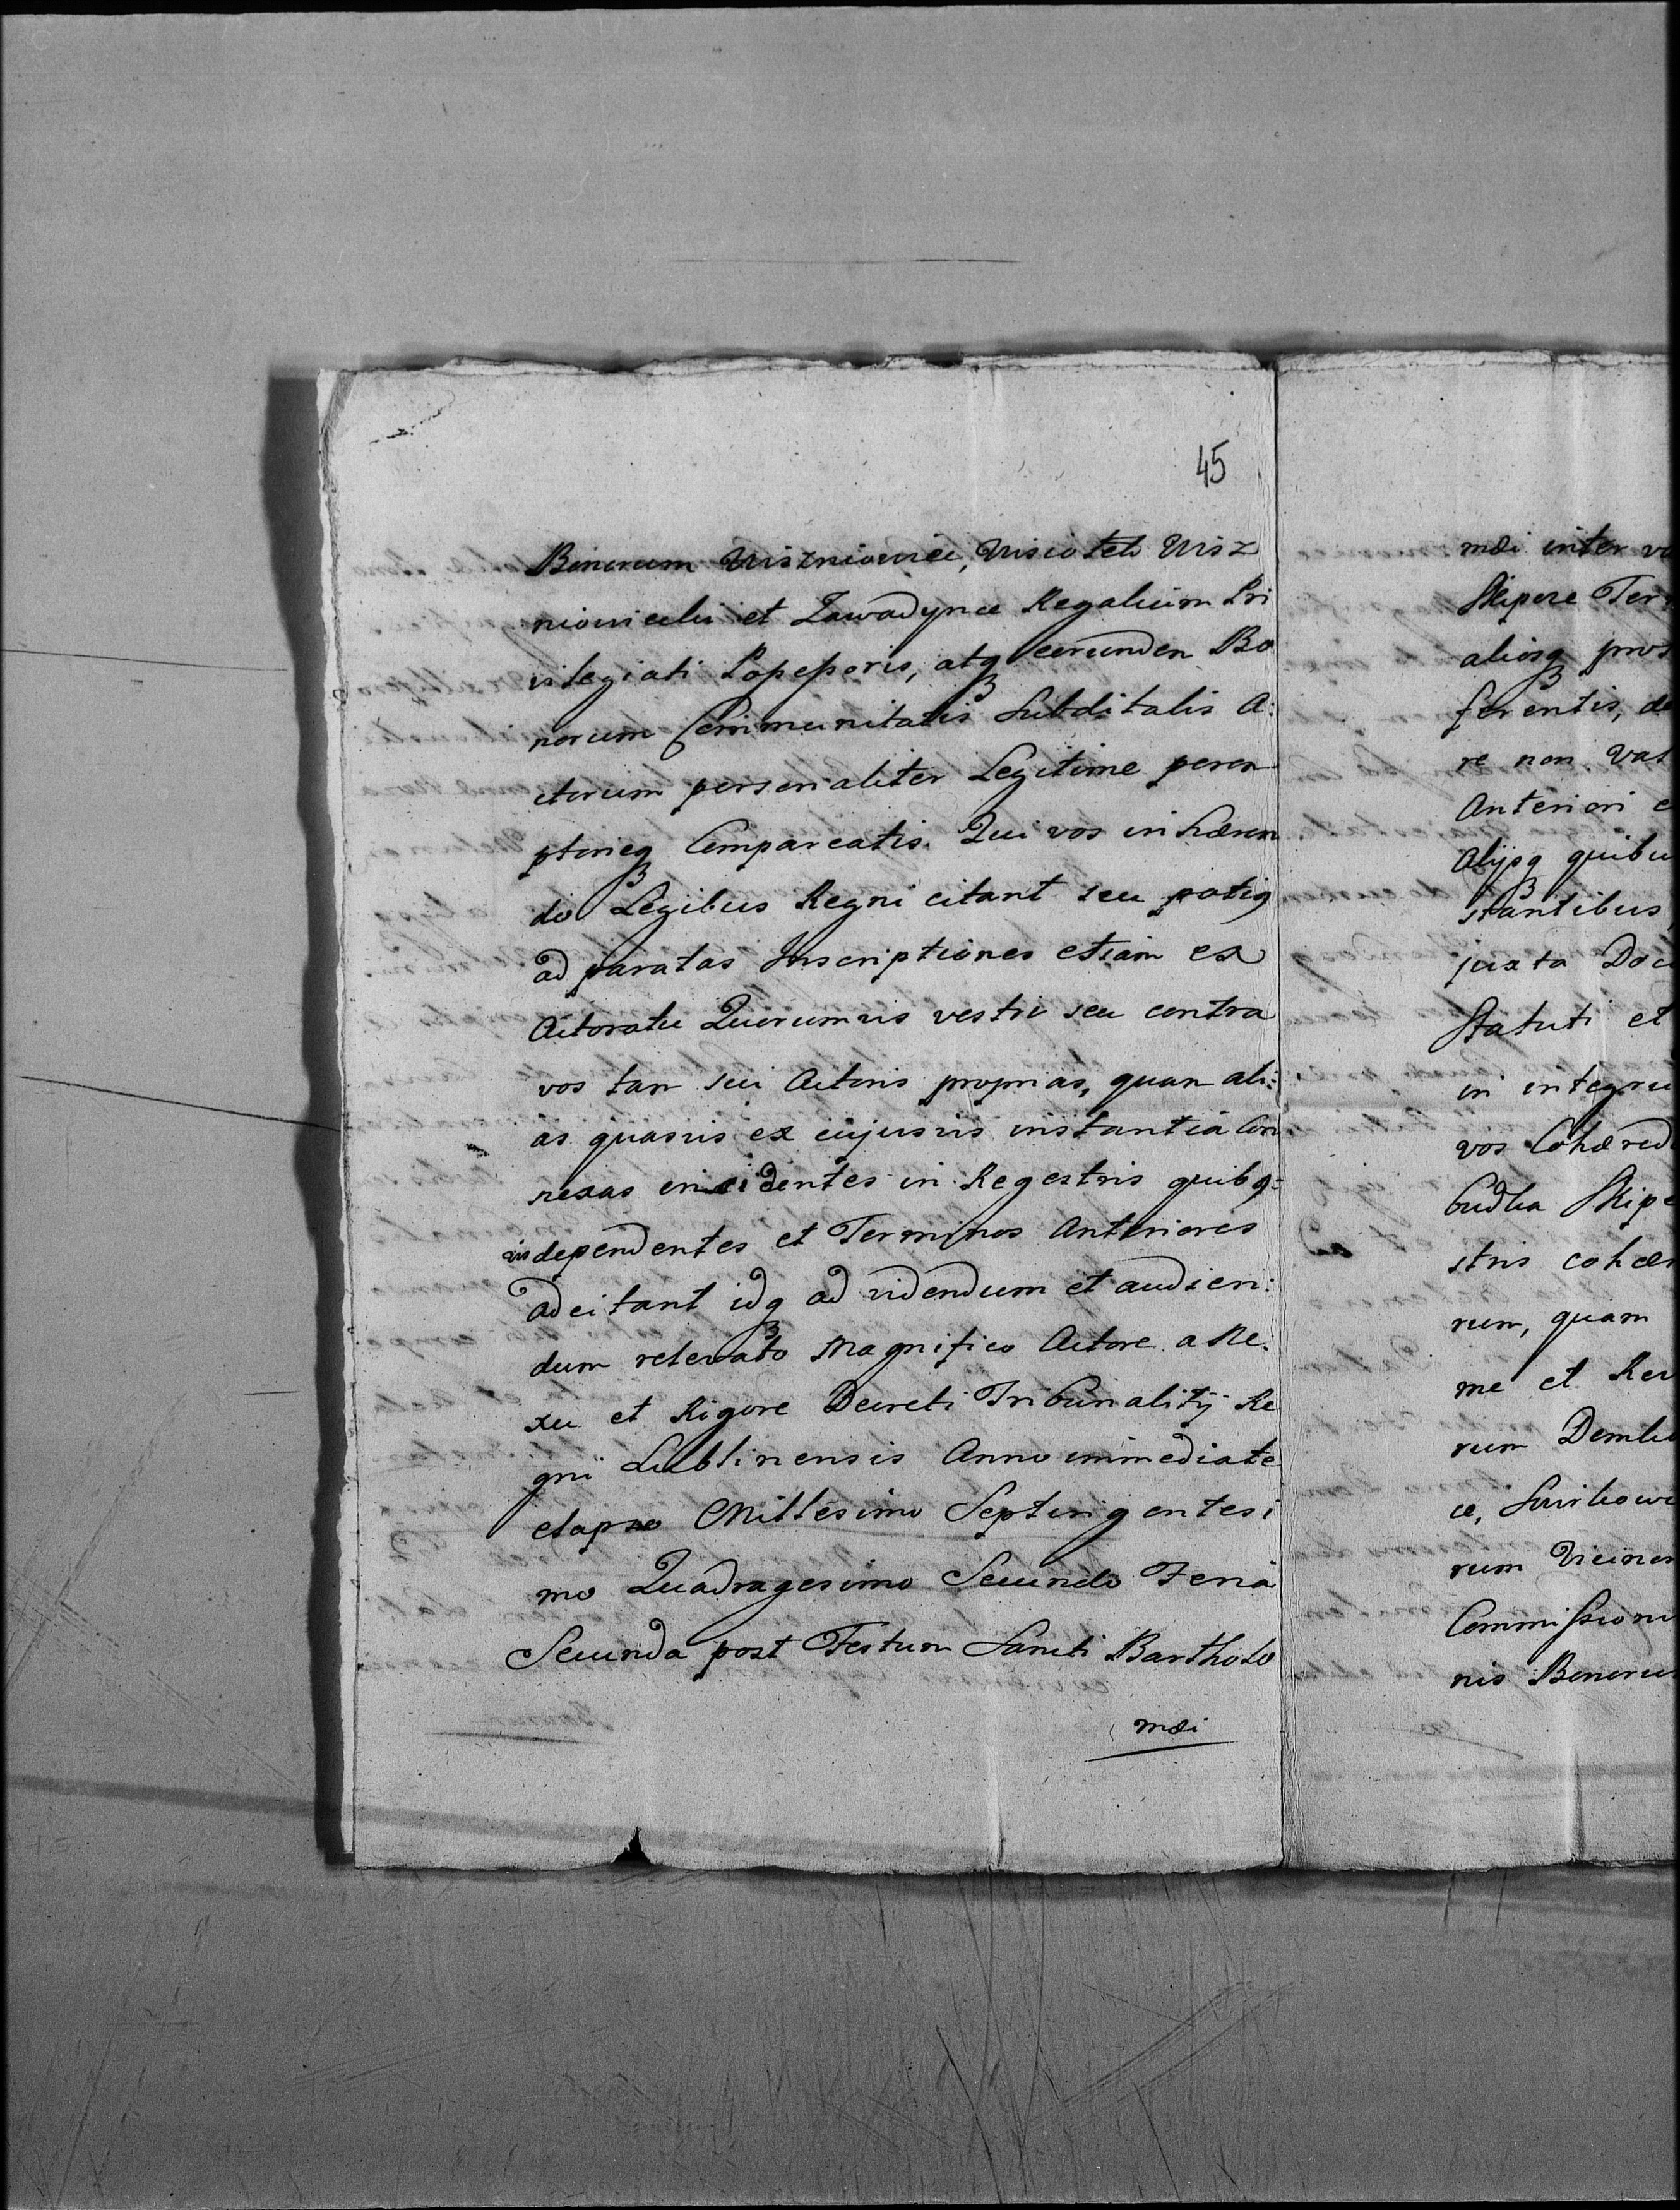 45
Bonorum Wiszniowiec, Wisiotek Wisz
niowieckii et Zawadynce Regalium Pri
vilegiati Possessoris, atq eorunden Bo
norum Communitatis Subditalis A:
ctorum personaliter Legitime peren
ptorieq Compareatis. Qui vos inhæren
do Legibus Regni citant seu potiq
ad paratas Inscriptiones etiam ex
Actoratu Quorumvis vestri seu contra
vos tan sui Actoris proprias, quan ali:
as quasvis ex cujusvis instantia Con
nexas incidentes in Regestris quibq=
vis dependentes et Terminos Anteriores
adcitant idq ad videndum et audien:
dum relevato Magnifico Actore a Ne.
xu et Rigore Decreti Tribunalitÿ Re
gni Lublinensis Anno immediate
elapso Millesimo Septingentesi
mo Quadragesimo Secundo Feria
Secunda post Festum Sancti Bartholo
mæi
mæi inter
Skipere
aliosq
ferentis,
re non
Anteriori
Alijsq
stantibus
juxta
Statuti et
in
vos
Skip
stris
rum, quam
me et
rum
ce,
rum
nis